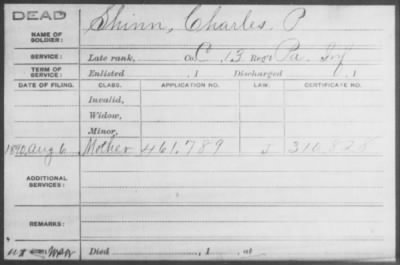 DEAD
NAME OF SOLDIER: Shinn, Charles P
SERVICE: Late rank, Co. C, 13 Reg't Pa. Inf
TERM OF SERVICE: Enlisted , 1 Discharged , 1
DATE OF FILING. CLASS. APPLICATION NO. LAW. CERTIFICATE NO.
Invalid,
Widow,
Minor,
1890 Aug 6 Mother 461.789 J 310.828
ADDITIONAL SERVICES:
REMARKS:
Died , 1 , at